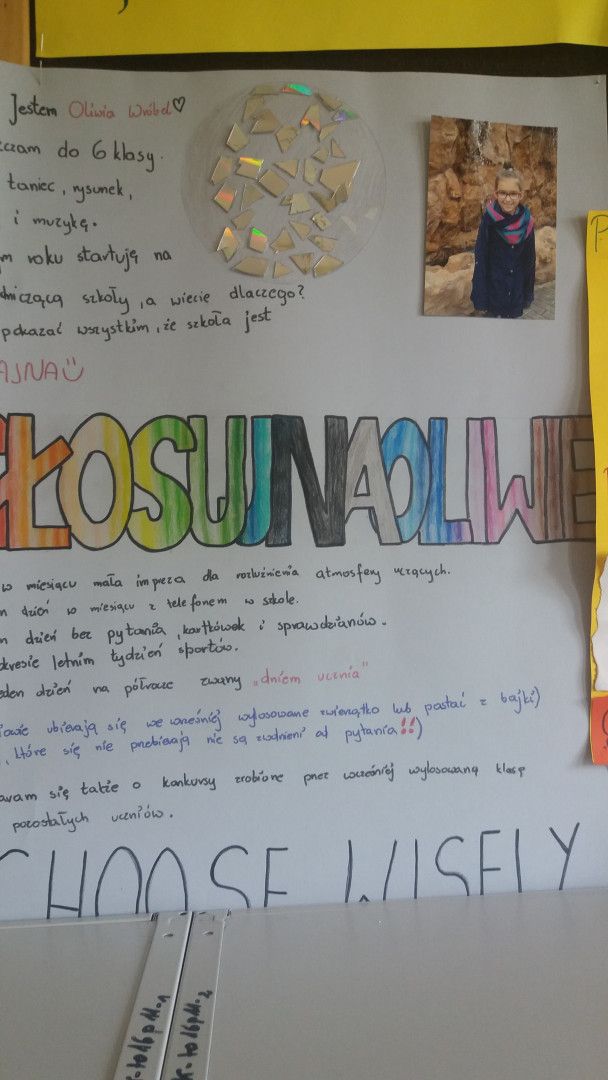 Jestem Oliwia Wróbel♡
czam do 6 klasy.
taniec, rysunek,
i muzykę.
m roku startuję na
dniczącą szkoły, a wiecie dlaczego?
pokazać wszystkim, że szkoła jest
AJNA
GŁOSUJ NA OLIWIE
w miesiącu mała impreza dla rozluźnienia atmosfery uczących.
n dzień w miesiącu z telefonem w szkole.
n dzień bez pytania, kartkówek i sprawdzianów.
okresie letnim tydzień sportów.
eden dzień na półrocze zwany „dniem ucznia"
iowie ubierają się we wcześniej wylosowane zwierzątko lub postać z bajki)
, które się nie przebierają nie są zwolnieni od pytania!!)
aram się także o konkursy zrobione przez wcześniej wylosowaną klasę
pozostałych uczniów.
CHOOSE WISELY